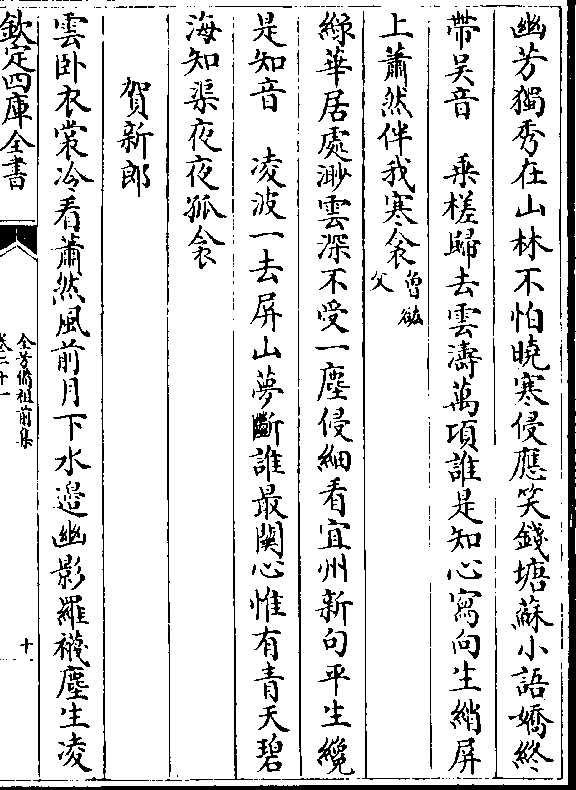 幽芳獨秀在山林不怕曉寒侵應笑錢塘蘇小語嬌終
帶吳音　乘槎歸去雲濤萬頃誰是知心寫向生綃屏
上蕭然伴我寒衾曾紘父
綠華居處渺雲深不受一塵侵細看宜州新句平生纔
是知音　凌波一去屏山夢斷誰最關心惟有青天碧
海知渠夜夜孤衾
賀新郎
雲卧衣裳冷看蕭然風前月下水邉幽影羅襪塵生凌
欽定四庫全書
全芳備祖前集
卷二十一
十